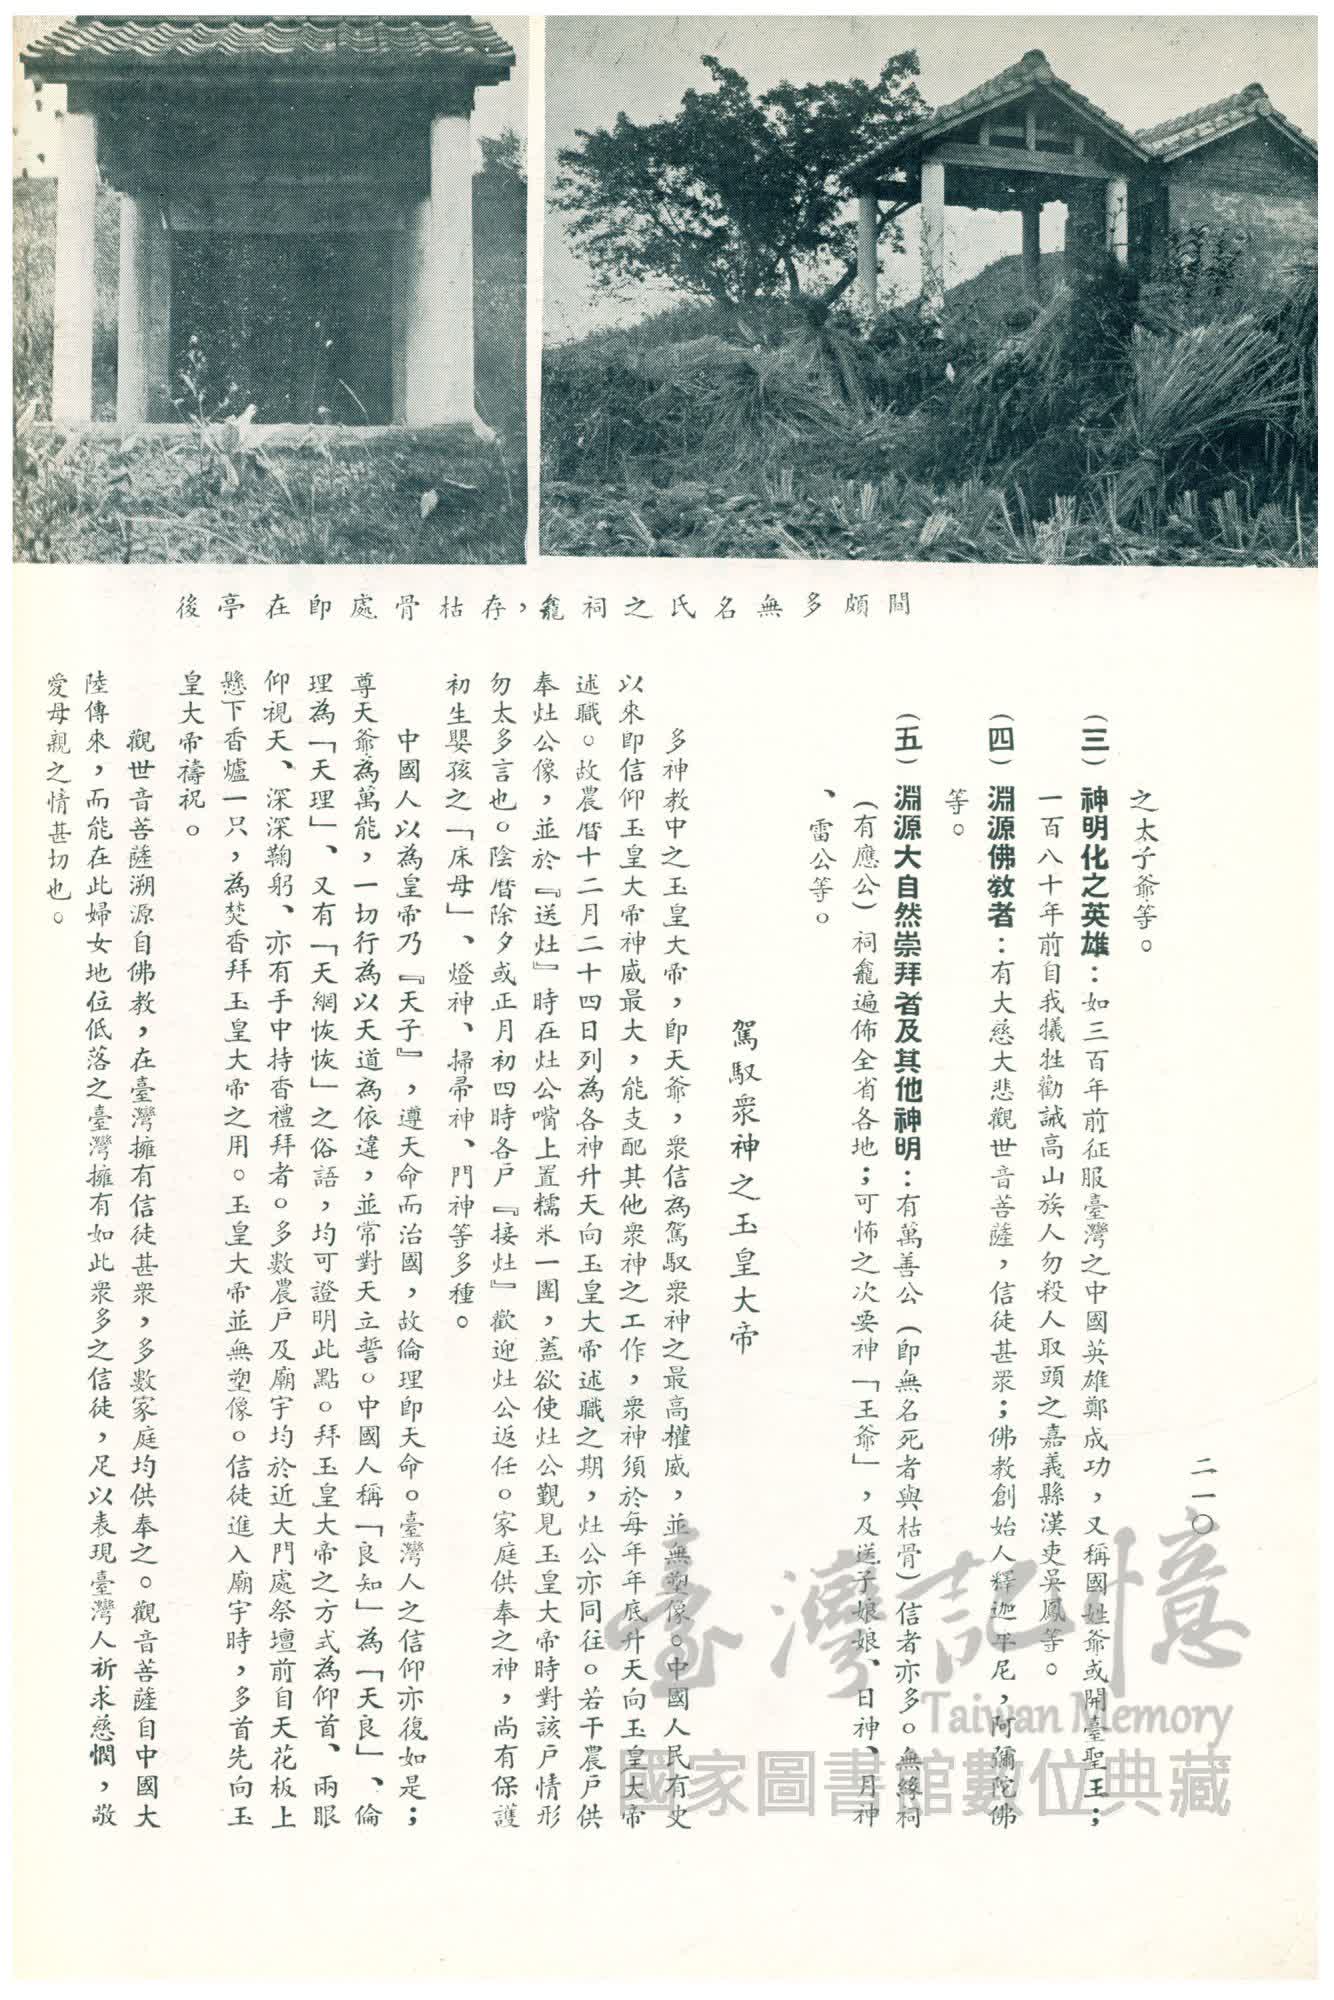 間頗多無名氏之祠龕，存枯骨處即在亭後
二一〇
之太子爺等。
(三) 神明化之英雄：如三百年前征服臺灣之中國英雄鄭成功，又稱國姓爺或開臺聖王；
一百八十年前自我犧牲勸誡高山族人勿殺人取頭之嘉義縣漢吏吳鳳等。
(四) 淵源佛教者：有大慈大悲觀世音菩薩，信徒甚眾；佛教創始人釋迦牟尼，阿彌陀佛
等。
(五) 淵源大自然崇拜者及其他神明：有萬善公（即無名死者與枯骨）信者亦多。無緣祠
（有應公）祠龕遍佈全省各地；可怖之次要神「王爺」，及送子娘娘、日神、月神
、雷公等。
駕馭衆神之玉皇大帝
多神教中之玉皇大帝，即天爺，衆信為駕馭衆神之最高權威，並無塑像。中國人民有史
以來即信仰玉皇大帝神威最大，能支配其他衆神之工作，衆神須於每年年底升天向玉皇大帝
述職。故農曆十二月二十四日列為各神升天向玉皇大帝述職之期，灶公亦同往。若干農戶供
奉灶公像，並於『送灶』時在灶公嘴上置糯米一團，蓋欲使灶公覲見玉皇大帝時對該戶情形
勿太多言也。陰曆除夕或正月初四時各戶『接灶』歡迎灶公返任。家庭供奉之神，尚有保護
初生嬰孩之「床母」、燈神、掃帚神、門神等多種。
中國人以為皇帝乃『天子』，遵天命而治國，故倫理即天命。臺灣人之信仰亦復如是；
尊天爺為萬能，一切行為以天道為依違，並常對天立誓。中國人稱「良知」為「天良」、倫
理為「天理」、又有「天網恢恢」之俗語，均可證明此點。拜玉皇大帝之方式為仰首、兩眼
仰視天、深深鞠躬、亦有手中持香禮拜者。多數農戶及廟宇均於近大門處祭壇前自天花板上
懸下香爐一只，為焚香拜玉皇大帝之用。玉皇大帝並無塑像。信徒進入廟宇時，多首先向玉
皇大帝禱祝。
觀世音菩薩溯源自佛教，在臺灣擁有信徒甚衆，多數家庭均供奉之。觀音菩薩自中國大
陸傳來，而能在此婦女地位低落之臺灣擁有如此衆多之信徒，足以表現臺灣人祈求慈憫，敬
愛母親之情甚切也。
臺灣記憶
Taiwan Memory
國家圖書館數位典藏